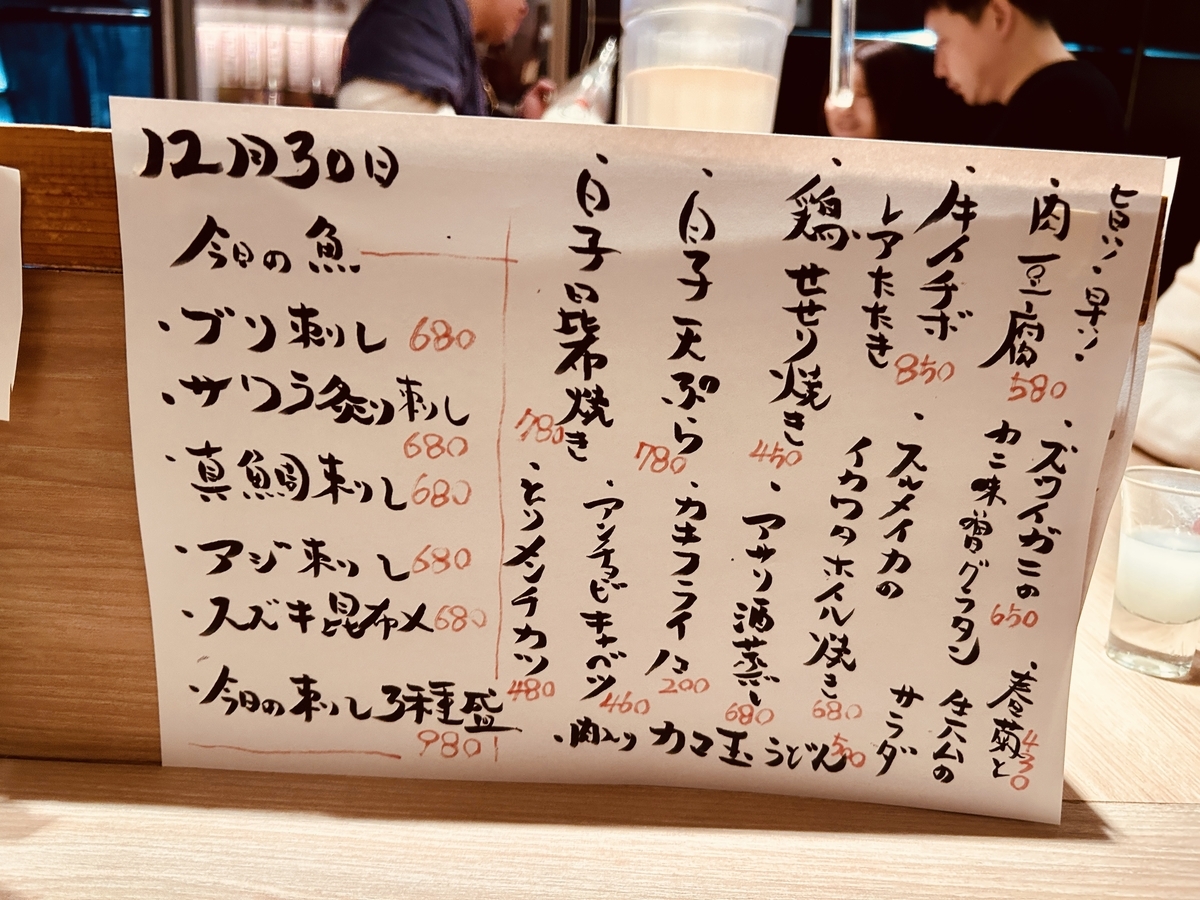 12月30日
今日の魚
・ブリ刺し 680
・サワラ炙り刺し 680
・真鯛刺し 680
・アジ刺し 680
・スズキ昆布〆 680
・今日の刺し3種盛 980
旨い・早い
・肉豆腐 580
・牛イチボ
レアたたき 850
・鶏せせり焼き 450
・白子天ぷら 780
・白子昆布焼き 780
・ズワイガニの
カニ味噌グラタン 650
・スルメイカの
イカワタホイル焼き 680
・アサリ酒蒸し 680
・カキフライ1コ 200
・アンチョビキャベツ 460
・とりメンチカツ 480
・春菊と
生ハムの
サラダ 430
・肉入りカマ玉うどん 500